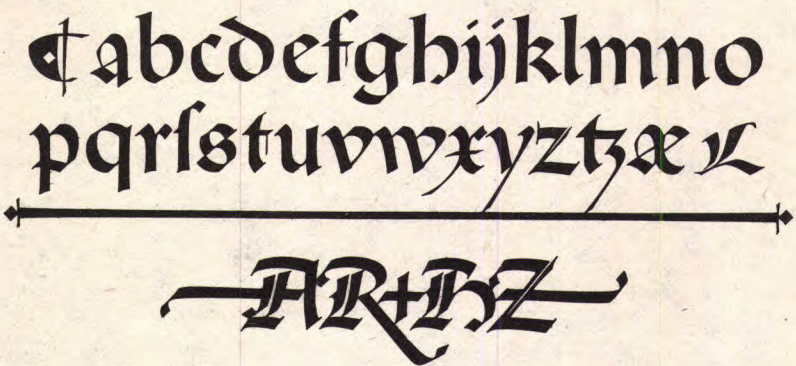 ¶abcdefghijklmno
pqrſstuvwxyztzæ
AR+HZ